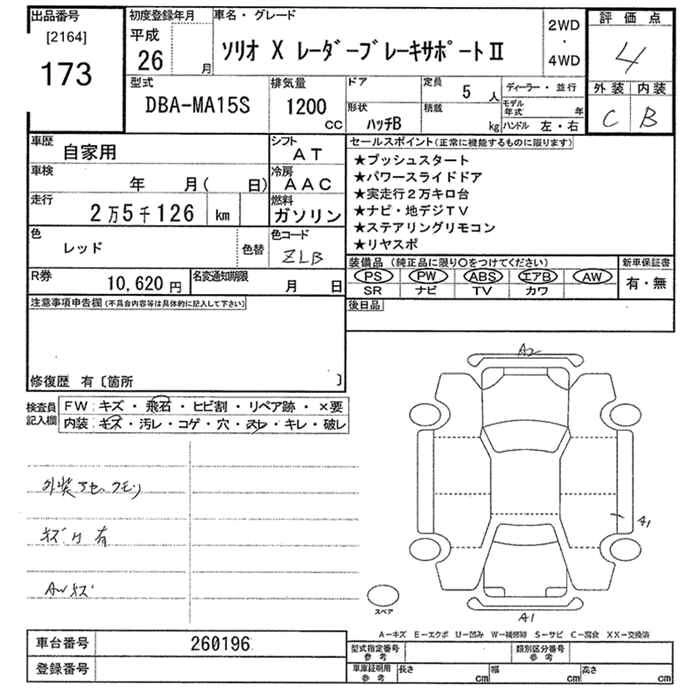 出品番号
[2164]
173
初度登録年月
平成
26 月
車名・グレード
ソリオ X レーダーブレーキサポートⅡ
2WD
・
4WD
評価点
4
外装 内装
C B
型式
DBA-MA15S
排気量
1200
cc
ドア
形状
ハッチB
定員
5 人
積載
kg
ディーラー・並行
モデル年式 年
ハンドル 左・右
車歴
自家用
シフト
AT
車検
年 月( 日)
冷房
AAC
走行
2万5千126 km
燃料
ガソリン
色
レッド
色替
色コード
ZLB
R券
10,620円
名変通知期限
月 日
セールスポイント(正常に機能するものに限ります)
★プッシュスタート
★パワースライドドア
★実走行2万キロ台
★ナビ・地デジTV
★ステアリングリモコン
★リヤスポ
装備品 (純正品に限り○をつけてください)
PS PW ABS エアB AW
SR ナビ TV カワ
新車保証書
有・無
後日品
注意事項申告欄(不具合内容等は具体的に記入して下さい)
修復歴 有〔箇所 〕
検査員
記入欄
FW:キズ・飛石・ヒビ割・リペア跡・×要
内装:キズ・汚レ・コゲ・穴・スレ・キレ・破レ
キズ 有
AWキズ
A2
A1
A1
スペア
A-キズ E-エクボ U-凹み W-補修跡 S-サビ C-腐食 XX-交換済
車台番号
260196
登録番号
型式指定番号
参考
類別区分番号
参考
車庫証明用
参考
長さ cm
幅 cm
高さ cm